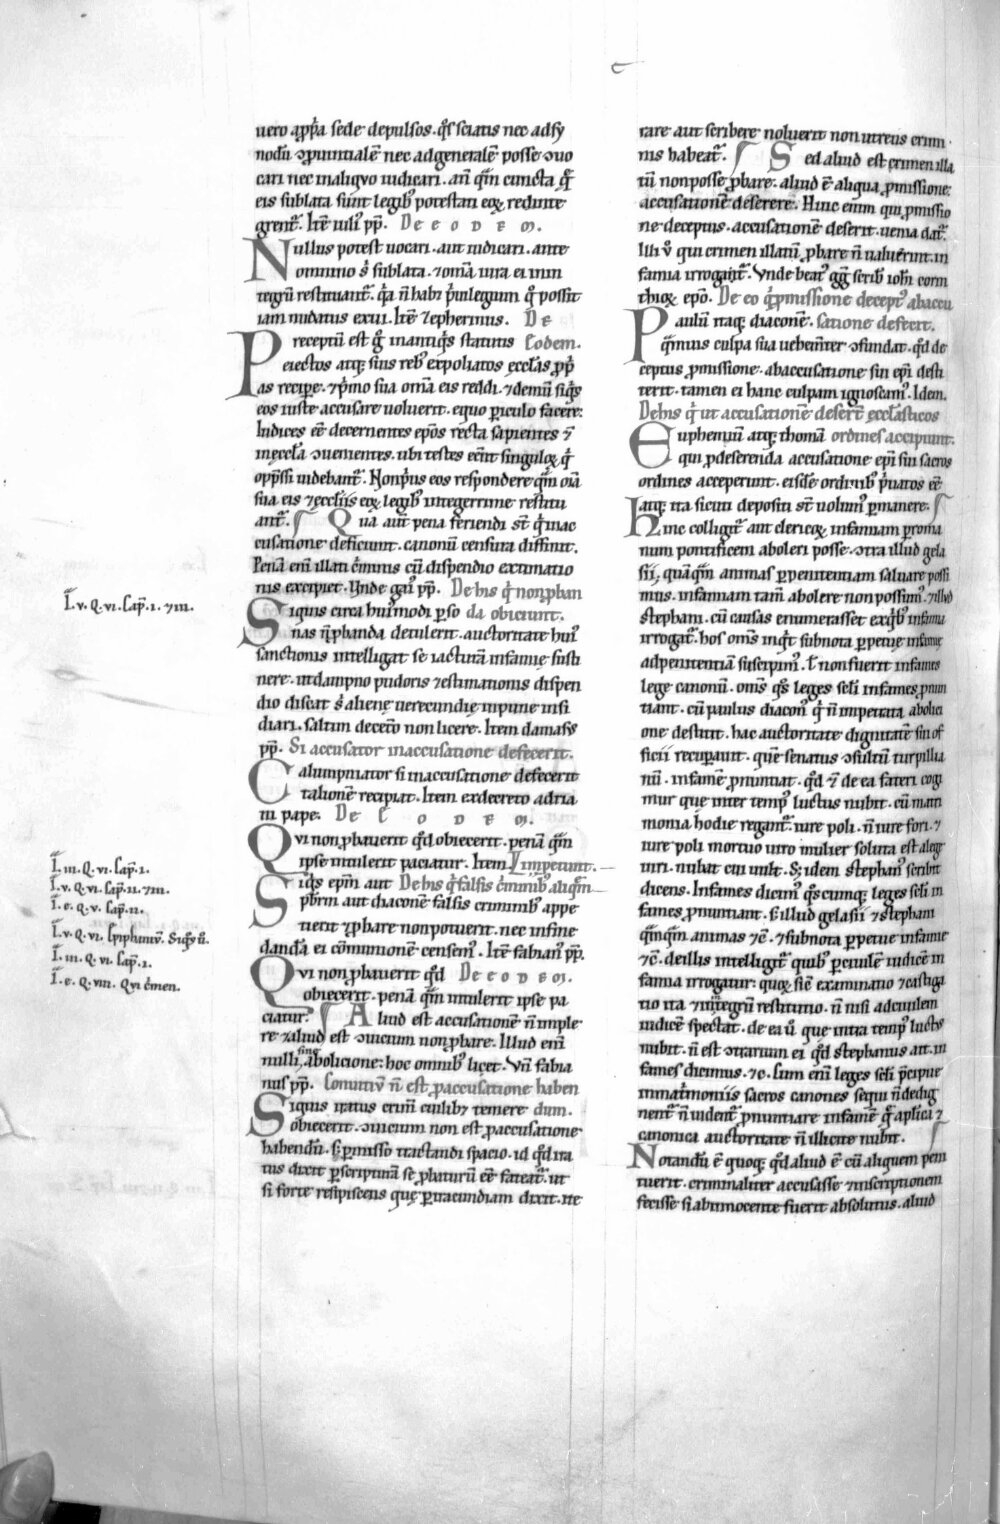 uero ap̱p̱a sede depulsos. q̄s sciatis nec ad sy
nodū ꝓuintialē nec ad generalē posse ꝯuo
cari nec in aliquo iudicari. an̄ q̄m cuncta q̄
eis sublata sunt legibꝰ potestati eoꝝ redinte
grent᷑. Itē iulíꝰ pp̄. De eodem.
Nullus potest uocari. aut iudicari. ante
nomnino s̄ sublata. ⁊ om̄a iura ei in in
tegrū restituant᷑. q̇a n̄ habꝫ ṗuilegium q̇ possit
iam nudatus exui. Itē Zephermus. De
Preceptū est ḡ in antiq̇s statutis Eodem.
eiectos atqꝫ suis rebꝰ expoliatos eccłas pp̄
as reciꝑe. ⁊ ṗmo sua om̄a eis reddi. ⁊ demū siq̇s
eos iuste accusare uoluerit. equo ꝑiculo facere.
Iudices eē decernentes ep̄os recta sapientes ⁊
in ęccła ꝯuenientes. ubi testes eēnt singuloꝝ q̇
opp̄ssi uidebant᷑. Non ṗus eos respondere q̄m oīa
sua eis ⁊ ęccłiis eoꝝ legibꝰ integerrime restitu
ant᷑. Qua aut̄ pena feriendi sт̄ q̇ in ac
cusatione deficiunt. canonū censura diffinit.
Penā enī illati c̓minis cū dispendio extimatio
nis excipiet. Unde gg̓i pp̄. De his q̇ non ꝓban
Siquis circa huiꝰmodi ꝑso da obiciunt.
nas n̄ ꝓbanda detulerit. auctoritate huiꝰ
sanctionis intelligat se iacturā infamię susti
nere. ut dampno pudoris ⁊ estimationis dispen
dio discat s̄ alienę uerecundię impune insi
diari. saltim decet̓o non licere. Item damasꝰ
pp̄. Si accusator in accusatione defecerit.
Calumpniator si in accusatione defecerit
talionē recipiat. Item ex decreto adria
ni pape. De Eodem.
Qui non ꝓbauerit q̇d obiecerit. penā q̄m
ipse intulerit paciatur. Item Limpetant.
Siq̇s ep̄m aut De his q̇ falsis c̓minibꝰ aliq̄m
p̄brm aut diaconē falsis criminibꝰ appe
tierit ⁊ ꝓbare non potuerit. nec in fine
dandā ei cōmunionē censemꝰ. Itē fabianꝰ pp̄.
Qui non ꝓbauerit q̇d De eodem.
obiecerit. penā q̄m intulerit ipse pa
ciatur. Aliud est accusationē n̄ imple
re ⁊ aliud est ꝯuicium non ꝓbare. Illud enī
nulli sine abolicione: hoc omnibꝰ licet. Uñ fabia
nus pp̄. Conuitiū n̄ est ꝑ accusatione haben
Siquis iratus crim̄ cuilibꝫ temere dum.
obiecerit. ꝯuicium non est ꝓ accusatione
habendū. S; ꝑmisso tractandi spacio. id q̇d ira
tus dixit ꝑ scripturā se ꝓbaturū eē fateat᷑. ut
si forte resipiscens quę ꝑ iracundiam dixit. ite
rare aut scribere noluerit non ut reus crim
nis habeat᷑. Sed aliud est crimen illa
tū non posse ꝓbare. aliud ē aliqua ꝓmissione
accusationē deserere. Hinc enim qui ꝓmissio
ne deceptus. accusationē deserit. uenia dat᷑.
Illi ů qui crimen illatū ꝓbare n̄ ualuerint. in
famia irrogant᷑. Unde beatꝰ gg̓ scribit ioh̄i corin
thioꝝ ep̄o. De eo q̇ ꝓmissione deceptꝰ ab accu
Paulū itaqꝫ diaconē. satione desecit.
q̄muis culpa sua uehement̓ ꝯfundat. q̇d de
ceptus ꝓmissione. ab accusatione sui ep̄i desti
terit. tamen ei hanc culpam ignoscamꝰ. Idem.
De his q̇ ut accusationē deserēt ecclasticos
Euphemiū atqꝫ thomā ordines accipiunt.
qui ꝓ deserenda accusatione ep̄i sui sacros
ordines acceperunt. eisdē ordinibꝰ ṗuatos eē
atqꝫ ita sicuti depositi sт̄ uolumꝰ ꝑmanere.
Hinc colligit᷑ aut clericoꝝ infamiam ꝑ roma
num pontificem aboleri posse. ꝯtra illud gela
sii, quāq̄m animas ꝑ penitentiam saluare possi
mus. infamiam tam̄ abolere non possumꝰ. ⁊ illud
stephani. cū causas enumerasset ex q̇bꝰ infamia
irrogat᷑. hos om̄s inq̇t subnota ꝑpetuę infamię
ad penitentiā suscipimꝰ. ł non fuerit infames
lege canonū. om̄s q̄s leges secłi infames ꝓnun
tiant. cū paulus diaconꝰ q̇ n̄ impetrata abolici
one destitit. hac auctoritate dignitatē sui of
ficii recuꝑauit. quē senatus ꝯsultū turpillia
nū. infamē ꝓnuntiat. q̇d ⁊ de ea fateri cogi
mur que inter tempꝰ luctus nubit. cū matri
monia hodie regant᷑. iure poli. n̄ iure fori. ⁊
iure poli mortuo uiro mulier soluta est a lege
uiri. nubat cui uult. S; idem stephanꝰ scribit
dicens. Infames dicimꝰ q̄scumqꝫ leges secłi in
fames ꝓnuntiant. S; illud gelasii ⁊ stephani
q̄mq̄m animas ⁊c̄. ⁊ subnota ꝑpetue infamie
⁊c̄. de illis intelligit᷑ quibꝰ ꝑ ciuilē iudicē in
famia irrogatur. quoꝝ sic̄ examinatio ⁊ castiga
tio ita ⁊ in integrū restitutio. n̄ nisi ad ciuilem
iudicē spectat. de ea ů que intra tempꝰ luctꝰ
nubit. n̄ est ꝯtrarium ei q̇d stephanus ait. in
fames dicimus. ⁊c. Cum enī leges secłi p̄cipue
in matrimoniis sacros canones sequi n̄ dedig
nent᷑. n̄ uident᷑ ꝓnuntiare infamē q̄ aplica ⁊
canonica auctoritate n̄ illicite nubit.
Notandū ē quoqꝫ q̇d aliud ē cū aliquem peni
tuerit. criminaliter accusasse ⁊ inscriptionem
fecisse si ab innocente fuerit absolutus. aliud
I. v. Q. vi. Cap̄. i. ⁊ iii.
I. iii. Q. vi. Cap̄. i.
I. v. Q. vi. Cap̄. ii. ⁊ iii.
I. e. Q. v. Cap̄. ii.
I. v. Q. vi.
I. iii. Q. vi. Cap̄. i.
I. e. Q. viii. Qui c̓men.